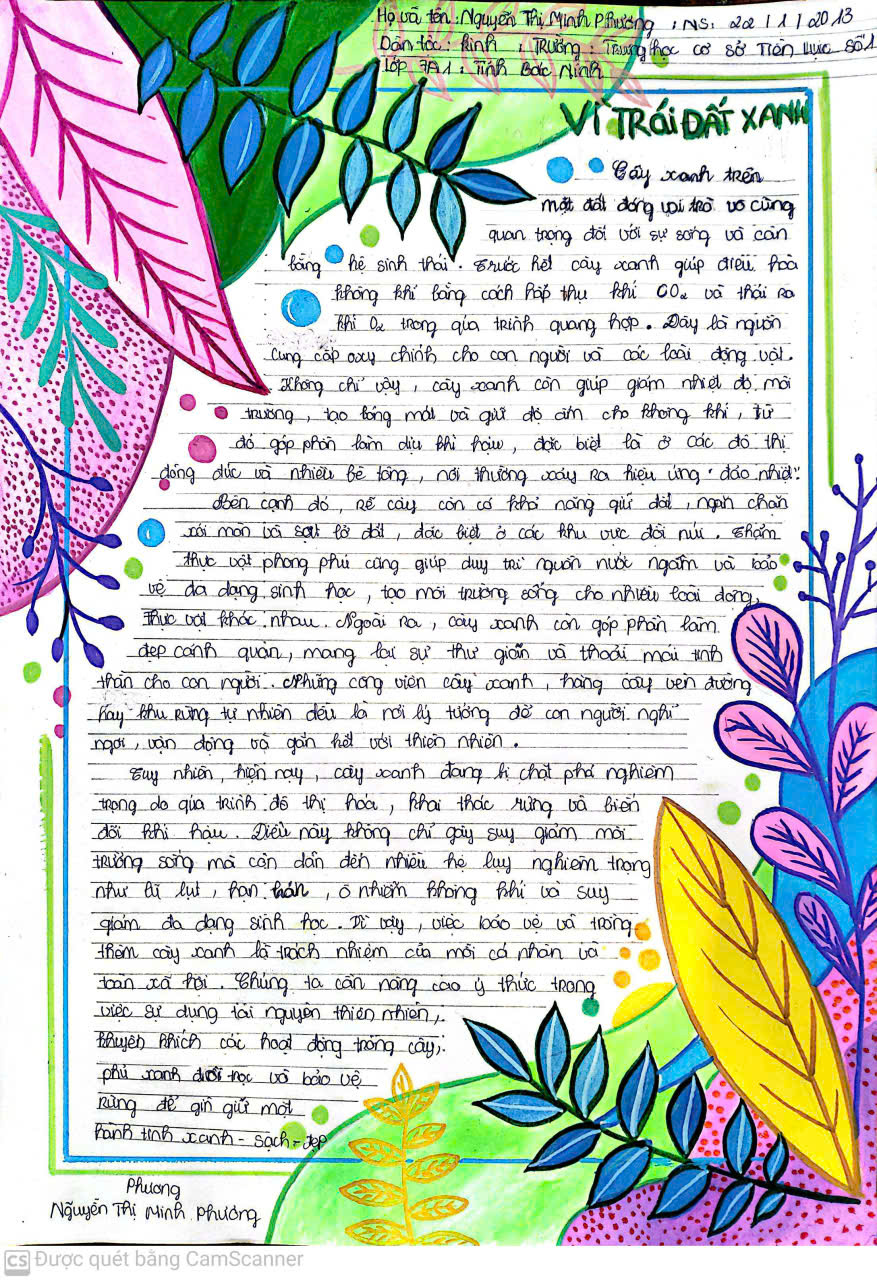 Họ và tên : Nguyễn Thị Minh Phương ; NS: 22 / 1 / 2013
Dân tộc : Kinh ; Trường : Trung học cơ sở Tiên Lục số 1
Lớp 7A1 ; Tỉnh Bắc Ninh
VÌ TRÁI ĐẤT XANH
Cây xanh trên
mặt đất đóng vai trò vô cùng
quan trọng đối với sự sống và cân
bằng hệ sinh thái. Trước hết cây xanh giúp điều hoà
không khí bằng cách hấp thụ khí CO2 và thải ra
khí O2 trong qúa trình quang hợp. Đây là nguồn
cung cấp oxy chính cho con người và các loài động vật.
Không chỉ vậy, cây xanh còn giúp giảm nhiệt độ môi
trường, tạo bóng mát và giữ độ ẩm cho không khí, từ
đó góp phần làm dịu khí hậu, đặc biệt là ở các đô thị
đông đúc và nhiều bê tông, nơi thường xảy ra hiệu ứng "đảo nhiệt".
Bên cạnh đó, rễ cây còn có khả năng giữ đất, ngăn chặn
xói mòn và sạt lở đất, đặc biệt ở các khu vực đồi núi. Thảm
thực vật phong phú cũng giúp duy trì nguồn nước ngầm và bảo
vệ đa dạng sinh học, tạo môi trường sống cho nhiều loài động,
thực vật khác nhau. Ngoài ra, cây xanh còn góp phần làm
đẹp cảnh quan, mang lại sự thư giãn và thoải mái tinh
thần cho con người. Những công viên cây xanh, hàng cây ven đường
hay khu rừng tự nhiên đều là nơi lý tưởng để con người nghỉ
ngơi, vận động và gắn kết với thiên nhiên.
Tuy nhiên, hiện nay, cây xanh đang bị chặt phá nghiêm
trọng do qúa trình đô thị hóa, khai thác rừng và biến
đổi khí hậu. Điều này không chỉ gây suy giảm môi
trường sống mà còn dẫn đến nhiều hệ lụy nghiêm trọng
như lũ lụt, hạn hán, ô nhiễm không khí và suy
giảm đa dạng sinh học. Vì vậy, việc bảo vệ và trồng
thêm cây xanh là trách nhiệm của mỗi cá nhân và
toàn xã hội. Chúng ta cần nâng cao ý thức trong
việc sử dụng tài nguyên thiên nhiên,
khuyến khích các hoạt động trồng cây,
phủ xanh đồi trọc và bảo vệ
rừng để gìn giữ một
hành tinh xanh - sạch - đẹp
Phương
Nguyễn Thị Minh Phương
CS Được quét bằng CamScanner